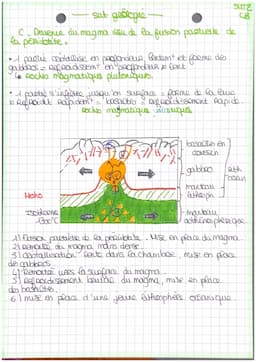 sub géologie
C. Devenue du magma issu de la fusion partielle de
la péridotite.
• 1 partie cristallise en profondeur lentement et forme des
gabbros = refroidissement en profondeur et lent
↳ roche magmatiques plutoniques.
• 1 partie s'infiltre jusqu'en surface = forme de la lave
= refroidit rapidement = basaltes = refroidissement rapide.
roche magmatiques
basaltes en
coussin
gabbros
manteau
lithosph
Moho
Isotherme
1300°C
manteau
asthénosphérique
1) Fusion partielle de la péridotite. Mise en place du magma
2) remontée du magma moins dense.
3) cristallisation lente dans la chambre, mise en place
des gabbros
4) Remontée vers la surface du magma
5) Refroidissement brutal du magma, mise en place
des basaltes.
6) mise en place d'une jeune lithosphère océanique.